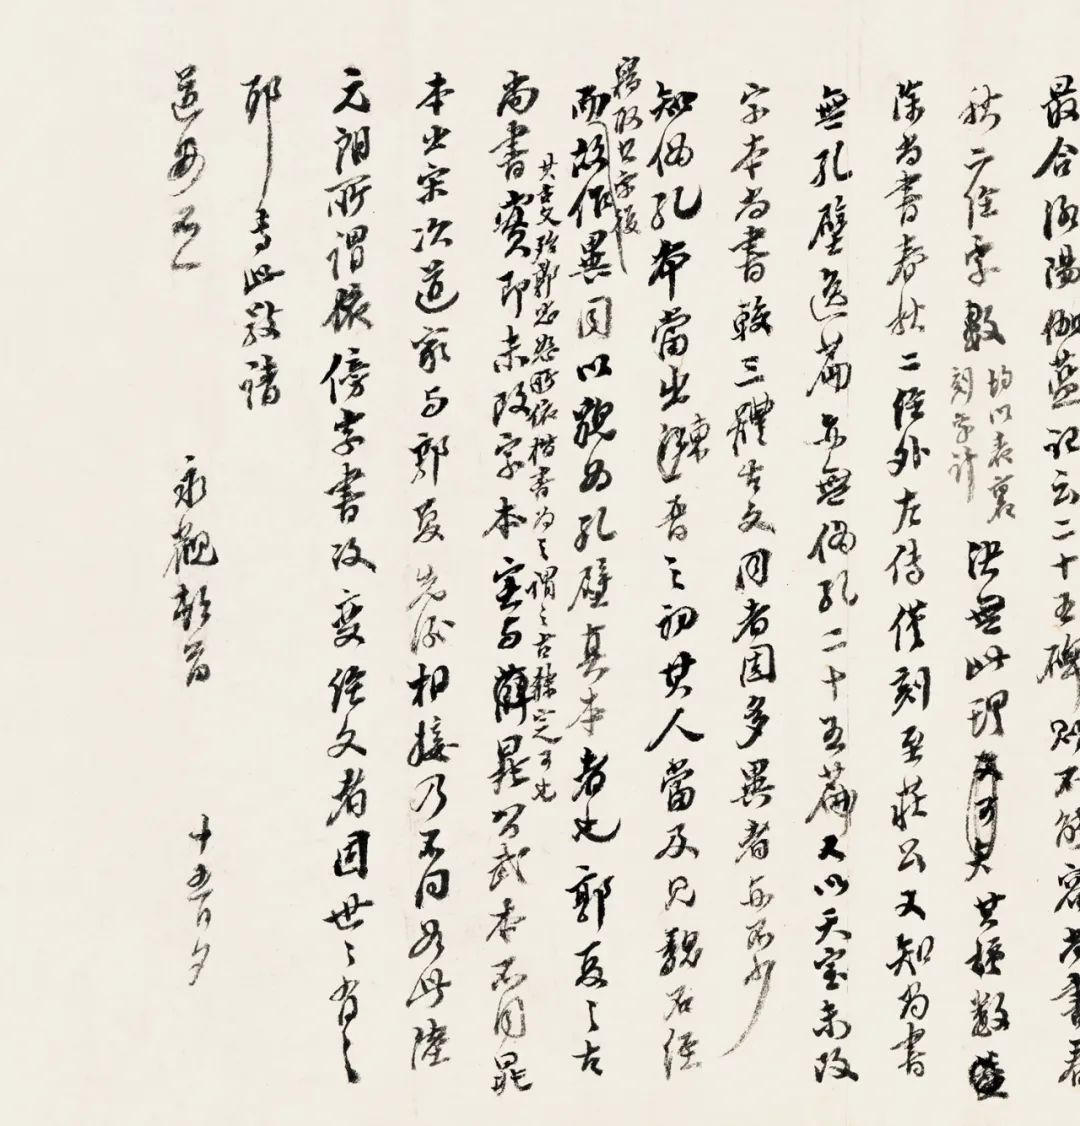 最合洛陽伽藍記云二十五碑則不能容尚書春
秋二經字數
均以表裏
刻字計
決無此理 其極數
除尚書春秋二經外左傳僅刻至莊公又知尚書
無孔壁逸篇亦無偽孔二十五篇又以天寶未改
字本尚書較三體古文同者固多異者亦不少
知偽孔本當出東晉之初其人當及見魏石經
竊取
而故作異同以貌為孔壁真本者也郭夏之古
其古文殆鄭忠恕所依楷書為之謂之古隸定可也
尚書實即未改字本宜與薛晁公武本不同晁
本出宋次道家與郭夏先後相接乃不同如此陸
元朗所謂依傍字書改變經文者固世世有之
耶專此敬請
道安不一
永觀頓首
十五日夕